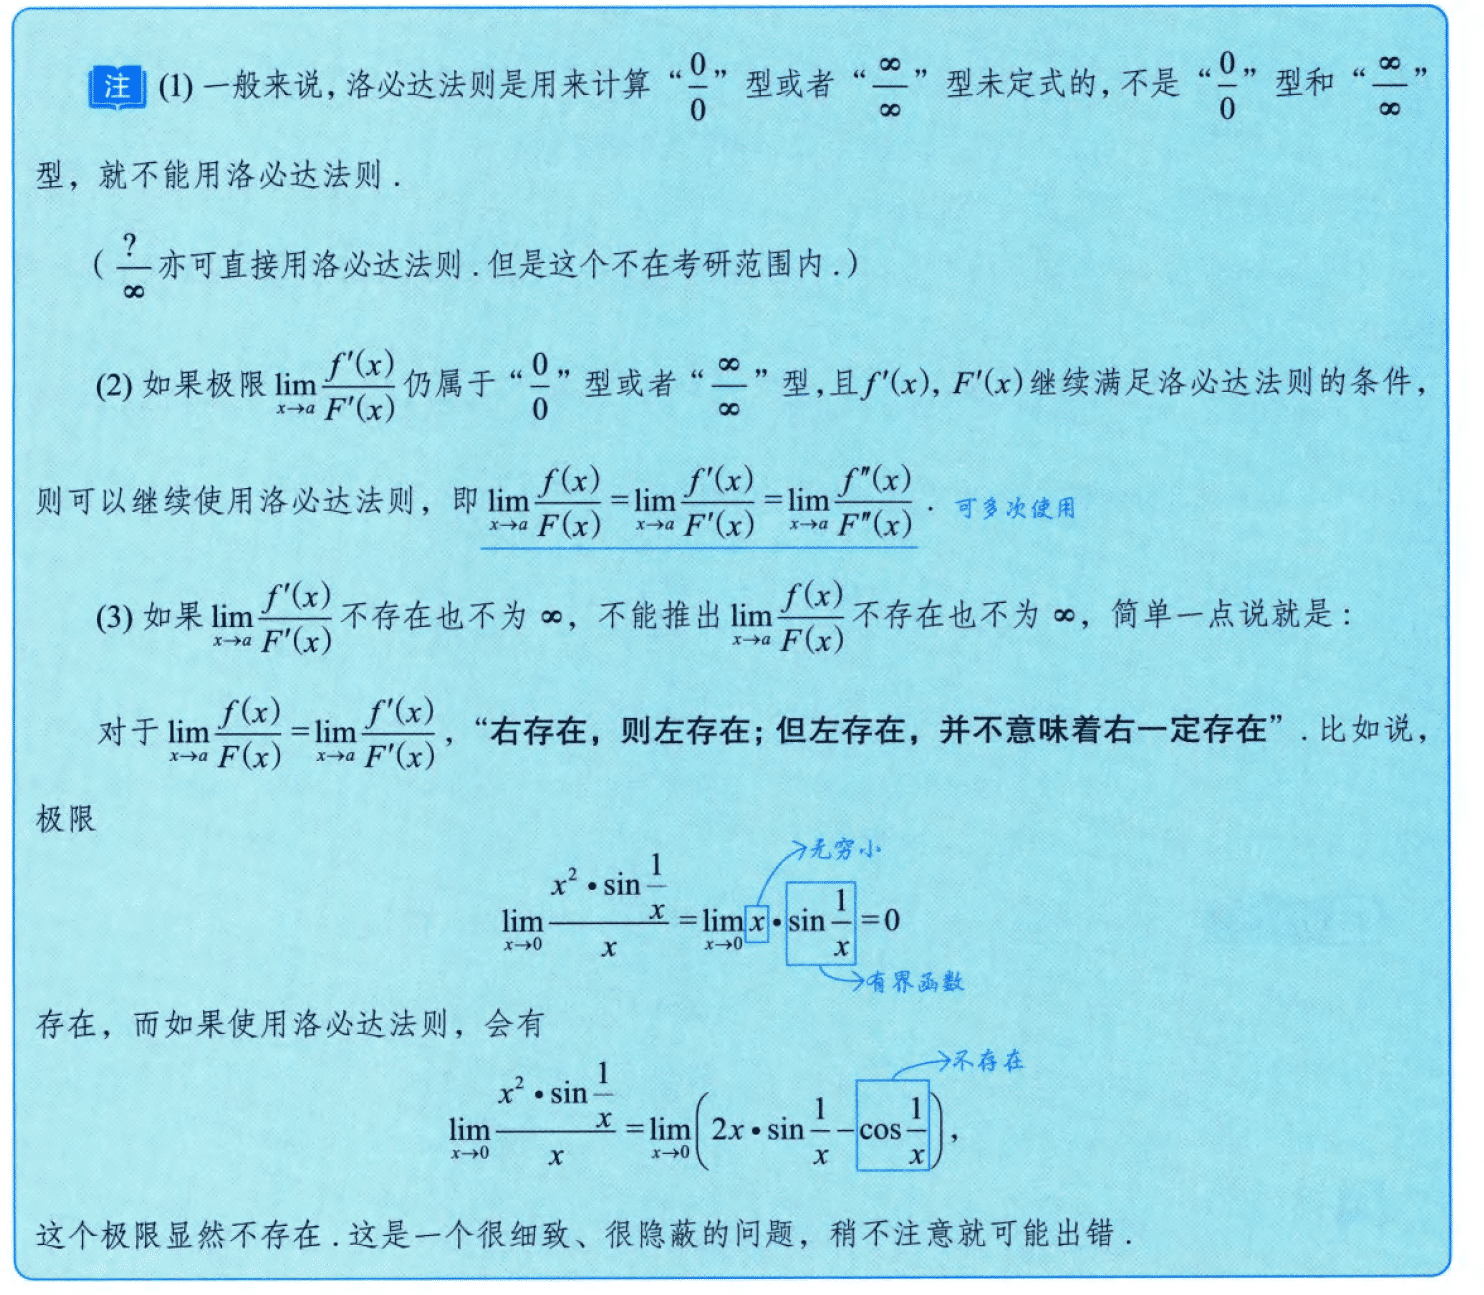 注 (1) 一般来说, 洛必达法则是用来计算 “$\frac{0}{0}$” 型或者 “$\frac{\infty}{\infty}$” 型未定式的, 不是 “$\frac{0}{0}$” 型和 “$\frac{\infty}{\infty}$”
型, 就不能用洛必达法则.
($\frac{?}{\infty}$ 亦可直接用洛必达法则. 但是这个不在考研范围内.)
(2) 如果极限 $\lim_{x \to a} \frac{f'(x)}{F'(x)}$ 仍属于 “$\frac{0}{0}$” 型或者 “$\frac{\infty}{\infty}$” 型, 且 $f'(x)$, $F'(x)$ 继续满足洛必达法则的条件,
则可以继续使用洛必达法则, 即 $\lim_{x \to a} \frac{f(x)}{F(x)} = \lim_{x \to a} \frac{f'(x)}{F'(x)} = \lim_{x \to a} \frac{f''(x)}{F''(x)}$. 可多次使用
(3) 如果 $\lim_{x \to a} \frac{f'(x)}{F'(x)}$ 不存在也不为 $\infty$, 不能推出 $\lim_{x \to a} \frac{f(x)}{F(x)}$ 不存在也不为 $\infty$, 简单一点说就是:
对于 $\lim_{x \to a} \frac{f(x)}{F(x)} = \lim_{x \to a} \frac{f'(x)}{F'(x)}$, “右存在, 则左存在; 但左存在, 并不意味着右一定存在”. 比如说,
极限
无穷小
$\lim_{x \to 0} \frac{x^2 \cdot \sin \frac{1}{x}}{x} = \lim_{x \to 0} x \cdot \sin \frac{1}{x} = 0$
有界函数
存在, 而如果使用洛必达法则, 会有
不存在
$\lim_{x \to 0} \frac{x^2 \cdot \sin \frac{1}{x}}{x} = \lim_{x \to 0} \left( 2x \cdot \sin \frac{1}{x} - \cos \frac{1}{x} \right),$
这个极限显然不存在. 这是一个很细致、很隐蔽的问题, 稍不注意就可能出错.